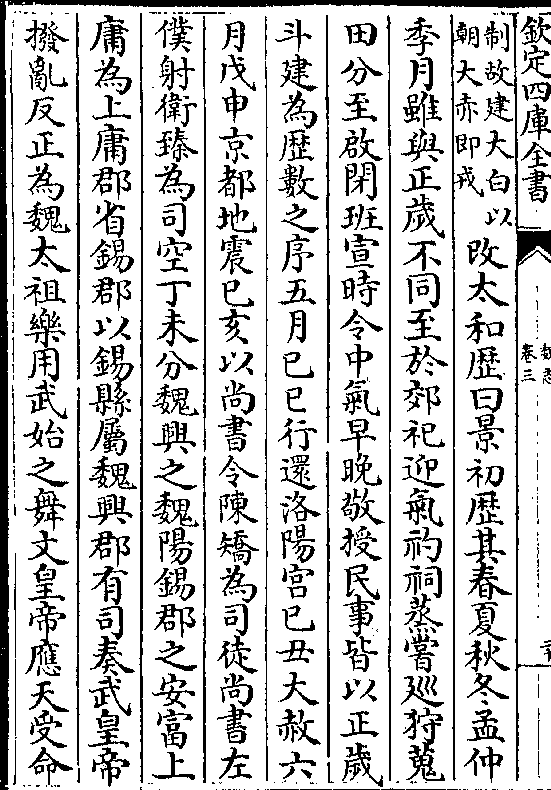 欽定四庫全書
卷三
制故建大白以
朝大赤即戎
改太和歴曰景初歴其春夏秋冬孟仲
季月雖與正歲不同至於郊祀迎氣礿祠蒸嘗廵狩蒐
田分至啟閉班宣時令中氣早晚敬授民事皆以正歲
斗建為歴數之序五月己巳行還洛陽宫己丑大赦六
月戊申京都地震己亥以尚書令陳矯為司徒尚書左
僕射衛臻為司空丁未分魏興之魏陽錫郡之安富上
庸為上庸郡省錫郡以錫縣屬魏興郡有司奏武皇帝
撥亂反正為魏太祖樂用武始之舞文皇帝應天受命